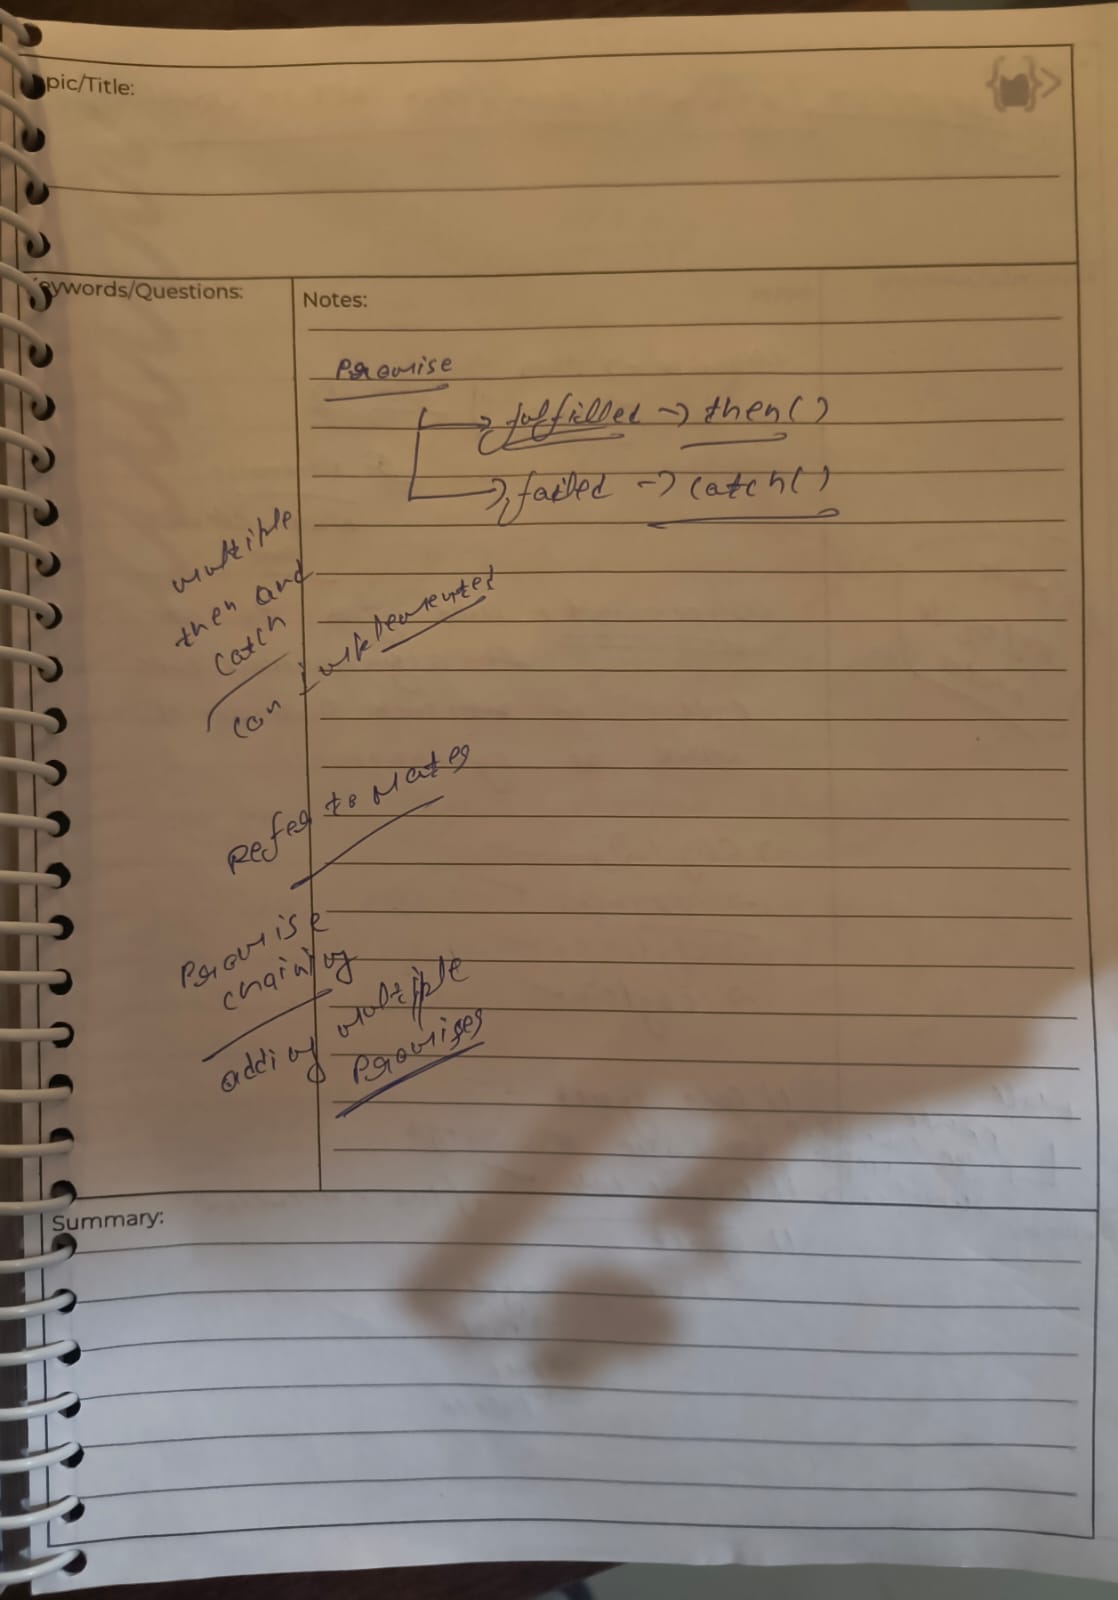 pic/Title:
eywords/Questions:
Notes:
Promise
fulfilled -> then()
failed -> catch()
multiple
then and
catch
can implemented
Refer to Notes
Promise
chaining
adding multiple
Promises
Summary: